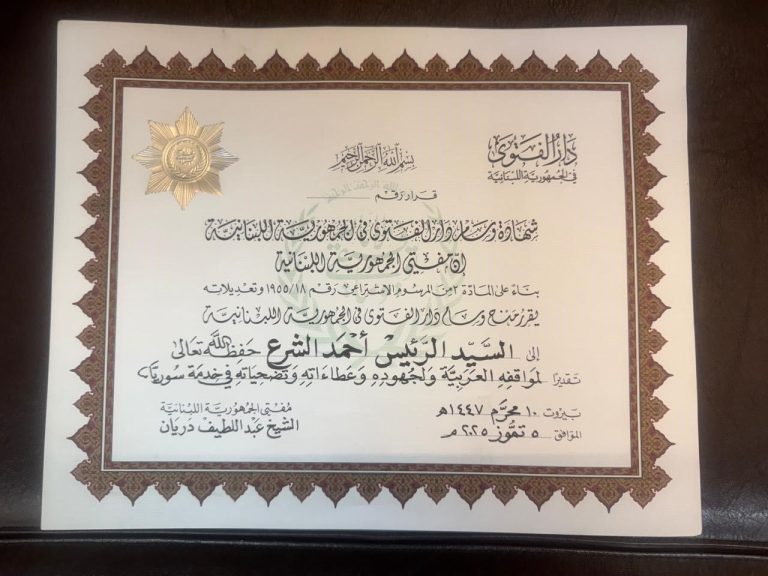 دار الفتوى
في الجمهورية اللبنانية
بسم الله الرحمن الرحيم
قرار رقم
شهادة وسام دار الفتوى في الجمهورية اللبنانية
إن مفتي الجمهورية اللبنانية
بناءً على المادة ٢ من المرسوم الاشتراعي رقم ١٩٥٥/١٨ وتعديلاته
يقرر منح وسام دار الفتوى في الجمهورية اللبنانية
إلى السيد الرئيس أحمد الشرع حفظه الله تعالى
تقديرًا لمواقفه العربية ولجهوده وعطاءاته وتضحياته في خدمة سوريا
بيروت ١٠ محرم ١٤٤٧هـ
الموافق ٥ تموز ٢٠٢٥م
مفتي الجمهورية اللبنانية
الشيخ عبد اللطيف دريان